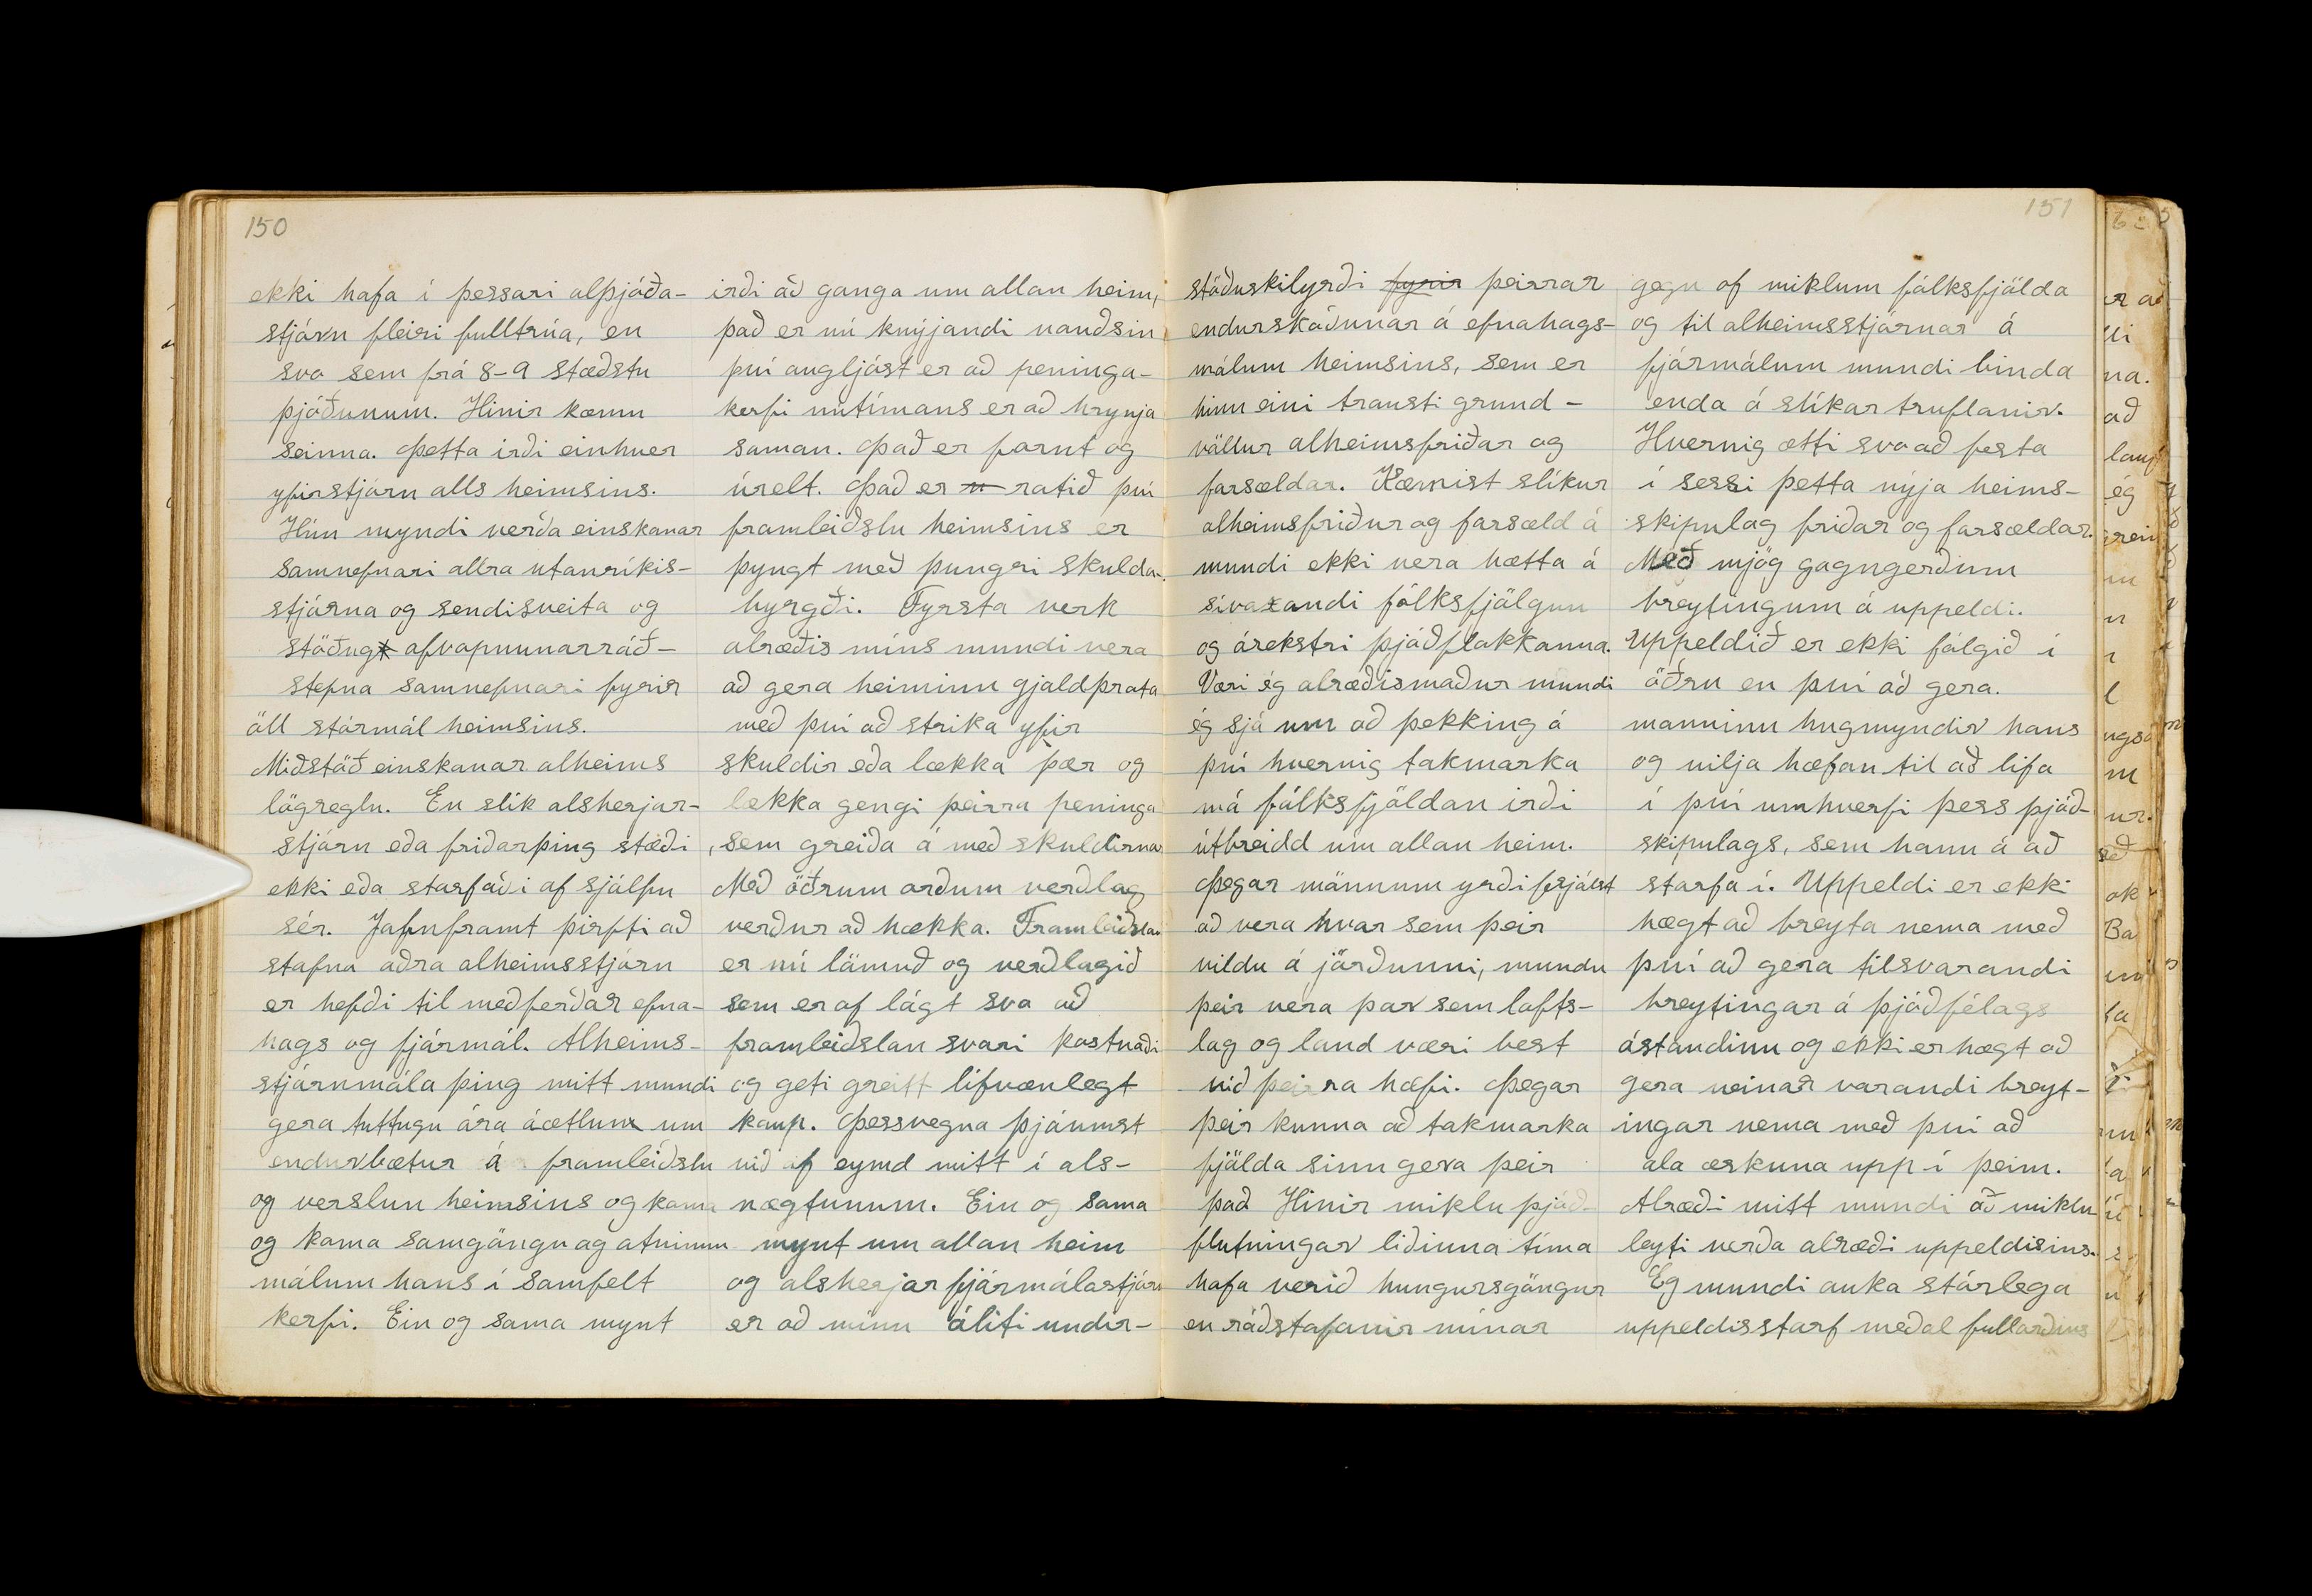 150
ekki hafa í þessari alþjóða-
stjórn fleiri fulltrúa, en
svo sem frá 8-9 stæðstu
þjóðunum. Hinir kæmu
seinna. Þetta irði einhver
yfirstjórn alls heimsins.
Hún myndi verða einskonar
samnefnari allra utanríkis-
stjórna og sendisveita og
stöðug afvopnunarráð-
stefna samnefnari fyrir
öll stórmál heimsins.
Miðstöð einskonar alheims
lögreglu. En slík alsherjar-
stjórn eða friðarþing stæði
ekki eða starfaði af sjálfu
sér. Jafnframt þirfti að
stofna aðra alheimsstjórn
er hefði til meðferðar efna-
hags og fjármál. Alheims-
stjórnmála þing mitt mundi
gera tuttugu ára áætlun um
endurbætur á framleiðslu
og verslun heimsins og koma
og koma samgöngu og atvinnu
málum hans í samfelt
kerfi. Ein og sama mynt
irði að ganga um allan heim,
það er nú knýjandi nauðsin
því augljóst er að peninga-
kerfi nútímans er að hrynja
saman. Það er fornt og
úrelt. Það er rotið því
framleiðslu heimsins er
þyngt með þungri skulda-
byrgði. Fyrsta verk
alræðis míns mundi vera
að gera heiminn gjaldþrota
með því að strika yfir
skuldir eða lækka þær og
lækka gengi þeirra peninga
, sem greiða á með skuldirnar
Með öðrum orðum verðlag
verður að hækka. Framleiðslan
er nú lömuð og verðlagið
sem er of lágt svo að
framleiðslan svari kostnaði
og geti greitt lífvænlegt
kaup. Þessvegna þjáumst
við af eymd mitt í als-
nægtunum. Ein og sama
mynt um allan heim
og alsherjar fjármálastjórn
er að mínu áliti undir-
151
stöðuskilyrði fyrir þeirrar
endurskoðunar á efnahags-
málum heimsins, sem er
hinn eini trausti grund-
völlur alheimsfriðar og
farsældar. Kæmist slíkur
alheimsfriður og farsæld á
mundi ekki vera hætta á
sívaxandi fólksfjölgun
og árekstri þjóðflokkanna.
Væri ég alræðismaður mundi
ég sjá um að þekking á
því hvernig takmarka
má fólksfjöldan irði
útbreidd um allan heim.
Þegar mönnum yrði frjálst
að vera hvar sem þeir
vildu á jörðunni, mundu
þeir vera þar sem lofts-
lag og land væri best
við þeirra hæfi. Þegar
þeir kunna að takmarka
fjölda sinn gera þeir
það Hinir miklu þjóð-
flutningar liðinna tíma
hafa verið hungursgöngur
en ráðstafanir mínar
gegn of miklum fólksfjölda
og til alheimsstjórnar á
fjármálum mundi binda
enda á slíkar truflanir.
Hvernig ætti svo að festa
í sessi þetta nýja heims-
skipulag friðar og farsældar.
Með mjög gagngerðum
breytingum á uppeldi.
Uppeldið er ekki fólgið í
öðru en því að gera.
manninn hugmyndir hans
og vilja hæfan til að lifa
í því umhverfi þess þjóð-
skipulags, sem hann á að
starfa í. Uppeldi er ekki
hægt að breyta nema með
því að gera tilsvarandi
breytingar á þjóðfélags
ástandinu og ekki er hægt að
gera neinar varandi breyt-
ingar nema með því að
ala æskuna upp í þeim.
Alræði mitt mundi að miklu
leyti verða alræði uppeldisins.
Eg mundi auka stórlega
uppeldisstarf meðal fullorðins